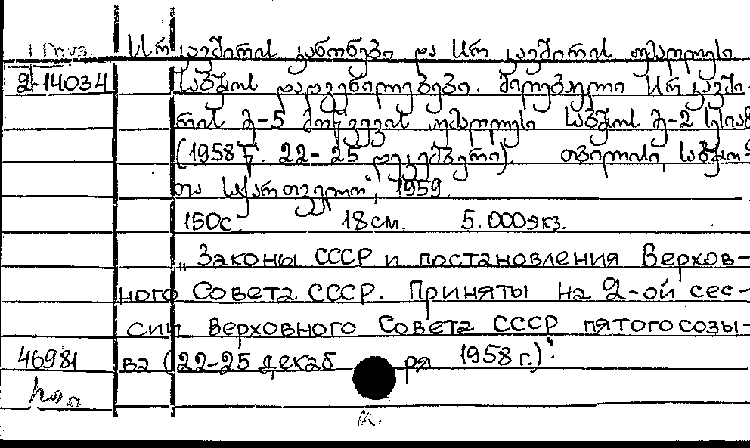 1 Груз. სსრ კავშირის კანონები და სსრ კავშირის უმაღლესი
2-14034 საბჭოს დადგენილებები. მიღებული სსრ კავში-
რის მე-5 მოწვევის უმაღლესი საბჭოს მე-2 სესიაზ
(1958 წ. 22-25 დეკემბერი). თბილისი, საბჭო-
თა საქართველო", 1959.
150с. 18см. 5.000экз.
„Законы СССР и постановления Верхов-
ного Совета СССР. Приняты на 2-ой сес-
сии Верховного Совета СССР пятого созы-
46981 ва (22-25 декаб ря 1958 г.)".